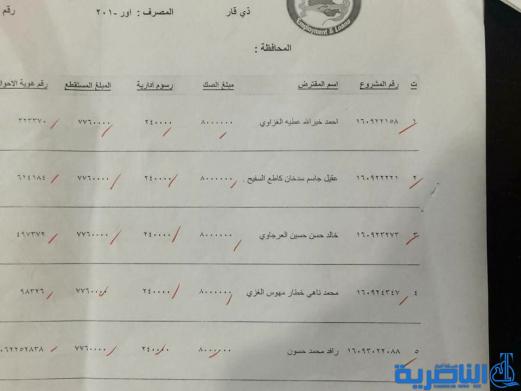 Employment & Loans
ذي قار المصرف : اور -٢٠١ رقم
المحافظة :
ت رقم المشروع اسم المقترض مبلغ الصك رسوم ادارية المبلغ المستقطع رقم هوية الاحوال
١ ١٦٠٩٢٢١٥٨ احمد خيرالله عطيه الغزاوي ٨٠٠٠٠٠٠ ٢٤٠٠٠٠ ٧٧٦٠٠٠٠ ٣٢٣٣٧٠
٢ ١٦٠٩٢٢٢٢١ عقيل جاسم سدخان كاطع السفيح ٨٠٠٠٠٠٠ ٢٤٠٠٠٠ ٧٧٦٠٠٠٠ ٦١٤١٨٤
٣ ١٦٠٩٢٣٢٧٣ خالد حسن حسين العرجاوي ٨٠٠٠٠٠٠ ٢٤٠٠٠٠ ٧٧٦٠٠٠٠ ٤٩٧٣٧٢
٤ ١٦٠٩٢٤٣٤٧ محمد ناهي خطار مهوس الغزي ٨٠٠٠٠٠٠ ٢٤٠٠٠٠ ٧٧٦٠٠٠٠ ٩٨٣٢٦
٥ ١٦٠٩٣٠٢٢٠٨٨ رافد محمد حسون ٨٠٠٠٠٠٠ ٢٤٠٠٠٠ ٧٧٦٠٠٠٠ ٠٦٢٢٥٢٨٣٨
الناصرية